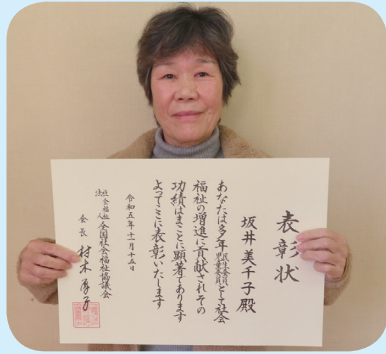 表彰状
坂井美千子殿
あなたは多年民生委員児童委員として社会
福祉の増進に貢献されその
功績はまことに顕著であります
よってここに表彰いたします
令和五年十一月十五日
社会福祉法人 全国社会福祉協議会
会長 村木厚子